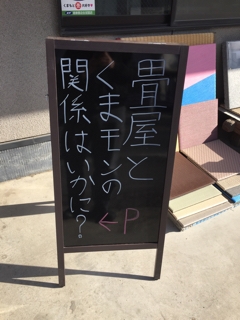 畳屋と
くまモンの
関係はいかに?
←P